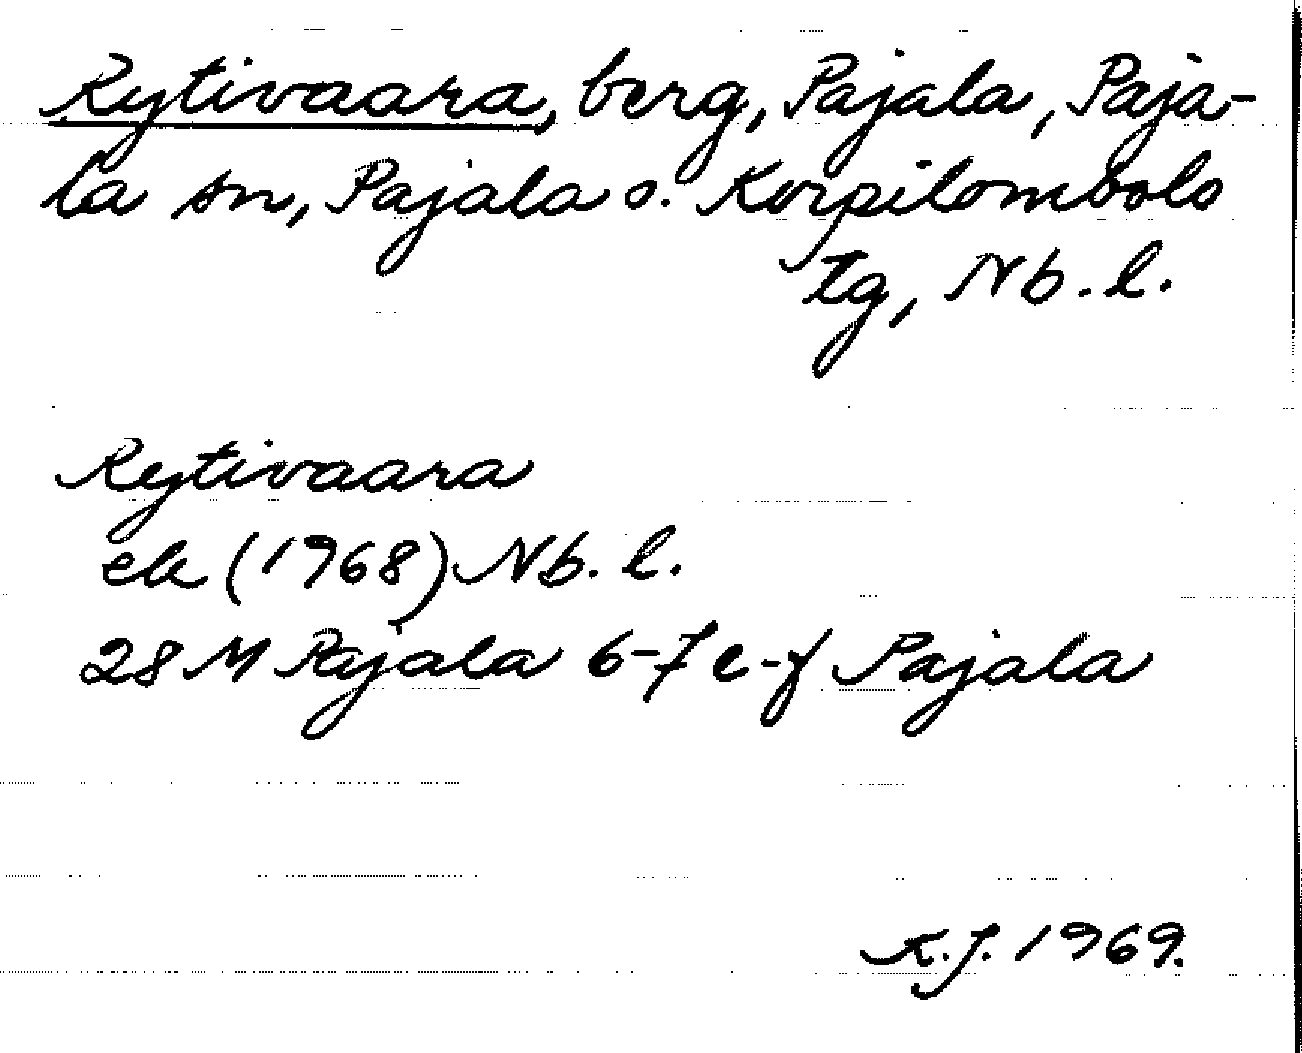 Rytivaara, berg, Pajala, Paja-
la sn, Pajala o. Korpilombolo
tg, Nb.l.
Rytivaara
ek (1968) Nb.l.
28 M Pajala 6-7 e-f Pajala
K.J. 1969.